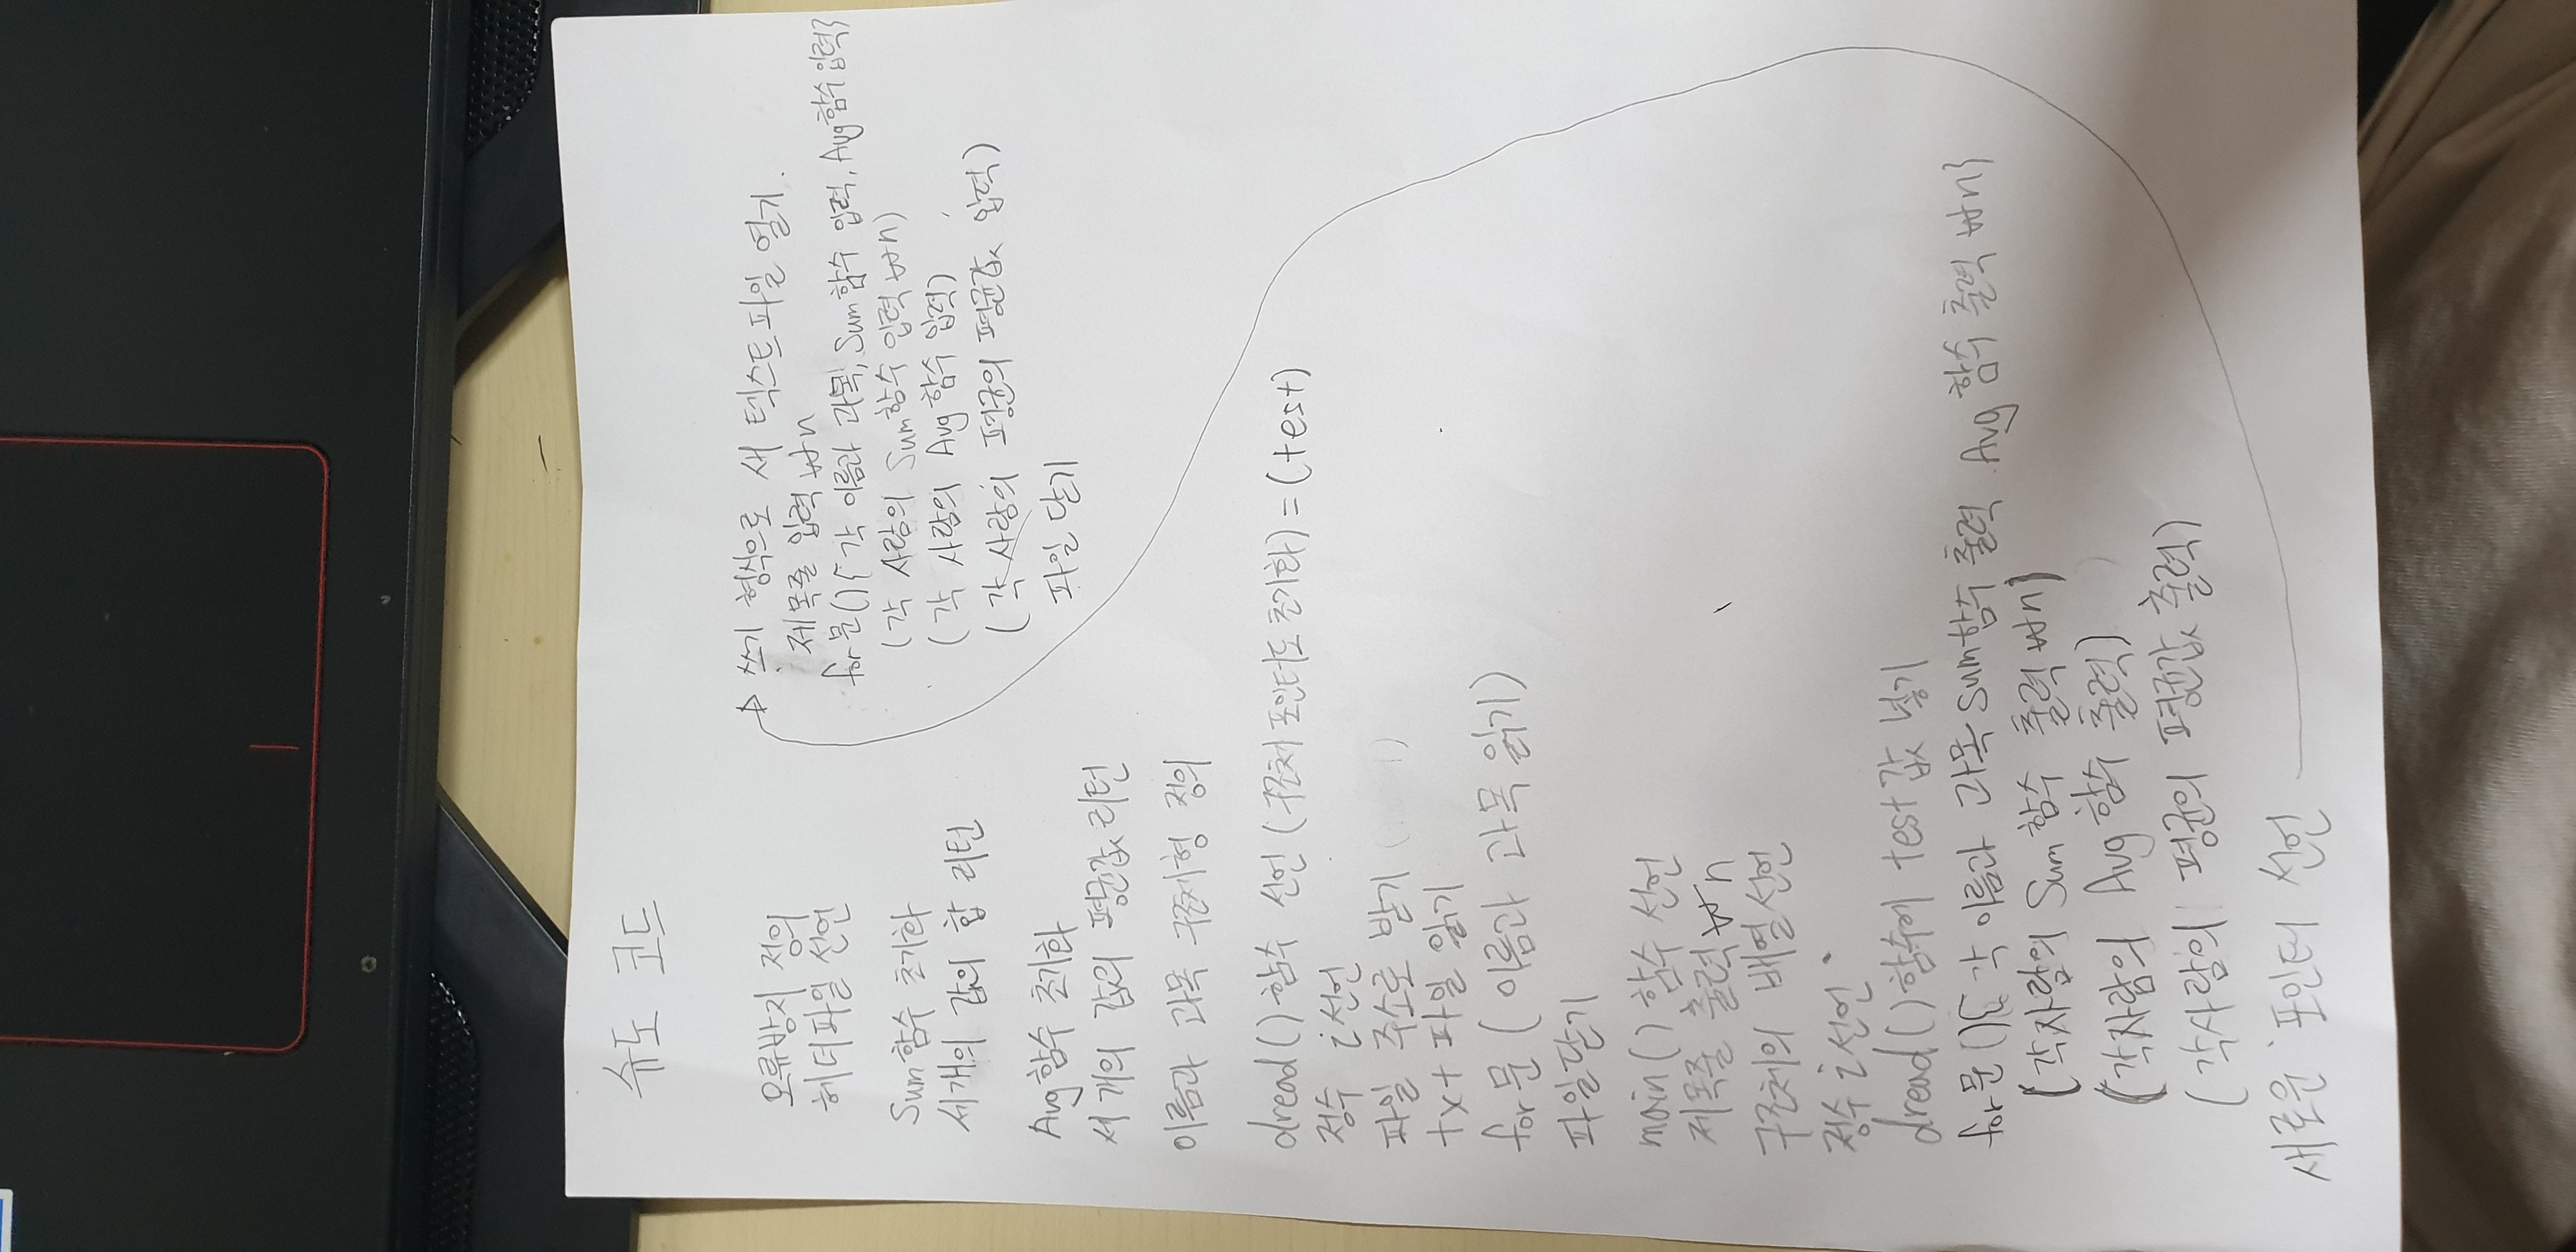 슈도 코드
오류방지 정의
헤더파일 선언
Sum함수 초기화
세개의 값의 합 리턴
Avg함수 초기화
세 개의 값의 평균값 리턴
이름과 과목 구조체형 정의
dread()함수 선언 (구조체 포인터도 초기화) = (test)
정수 i선언
파일 주소로 받기
txt 파일 읽기
for문 ( 이름과 과목 읽기)
파일닫기
main()함수 선언
제목줄 출력 ₩n
구조체의 배열선언
정수 i선언
dread()함수에 test값 넣기
for문(){ 각 이름과 과목 Sum함수 출력 Avg함수 출력 ₩n}
(각사람의 Sum함수 출력 ₩n)
(각사람의 Avg함수 출력)
(각사람의 평균의 평균값 출력)
새로운 포인터 선언
쓰기 형식으로 새 텍스트파일 열기.
제목줄 입력 ₩n
for문(){ 각 이름과 과목, Sum함수 입력, Avg함수입력}
(각 사람의 Sum함수 입력 ₩n)
(각 사람의 Avg함수 입력)
(각 사람의 평균의 평균값 입력)
파일 닫기